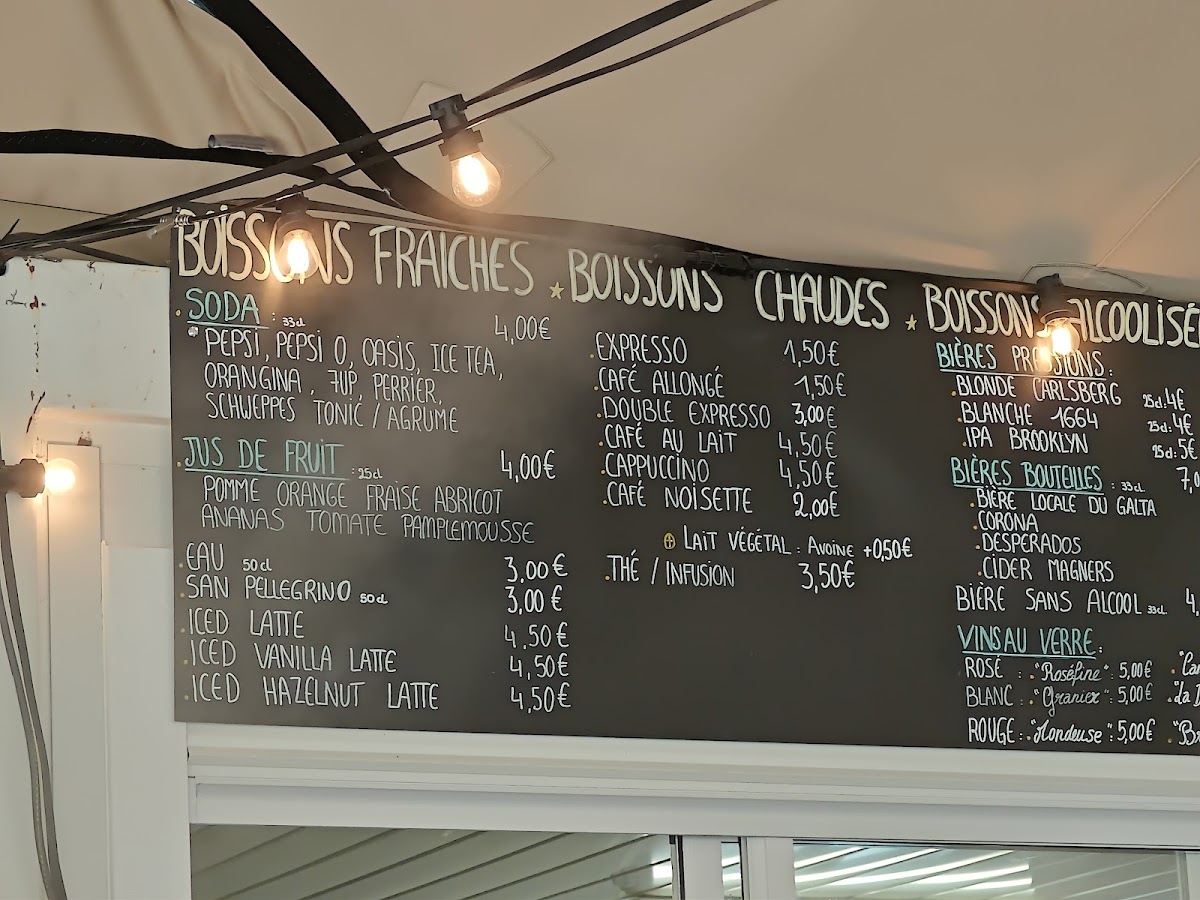 BOISSONS FRAICHES
SODA : 33cl 4,00€
* PEPSI, PEPSI O, OASIS, ICE TEA,
ORANGINA, 7UP, PERRIER,
SCHWEPPES TONIC / AGRUME
JUS DE FRUIT : 25cl 4,00€
POMME ORANGE FRAISE ABRICOT
ANANAS TOMATE PAMPLEMOUSSE
EAU 50cl 3,00€
SAN PELLEGRINO 50cl 3,00€
ICED LATTE 4,50€
ICED VANILLA LATTE 4,50€
ICED HAZELNUT LATTE 4,50€
BOISSONS CHAUDES
EXPRESSO 1,50€
CAFÉ ALLONGÉ 1,50€
DOUBLE EXPRESSO 3,00€
CAFÉ AU LAIT 4,50€
CAPPUCCINO 4,50€
CAFÉ NOISETTE 2,00€
LAIT VÉGÉTAL : AVOINE +0,50€
THÉ / INFUSION 3,50€
BOISSONS ALCOOLISÉE
BIÈRES PRESSIONS :
BLONDE CARLSBERG 25cl : 4€
BLANCHE 1664 25cl : 4€
IPA BROOKLYN 25cl : 5€
BIÈRES BOUTEILLES : 33cl 7,0
BIÈRE LOCALE DU GALTA
CORONA
DESPERADOS
CIDER MAGNERS
BIÈRE SANS ALCOOL 33cl 4,
VINS AU VERRE :
ROSÉ : "Roséfine" : 5,00€
BLANC : "Granier" : 5,00€ "La
ROUGE : "Mondeuse" : 5,00€ "B